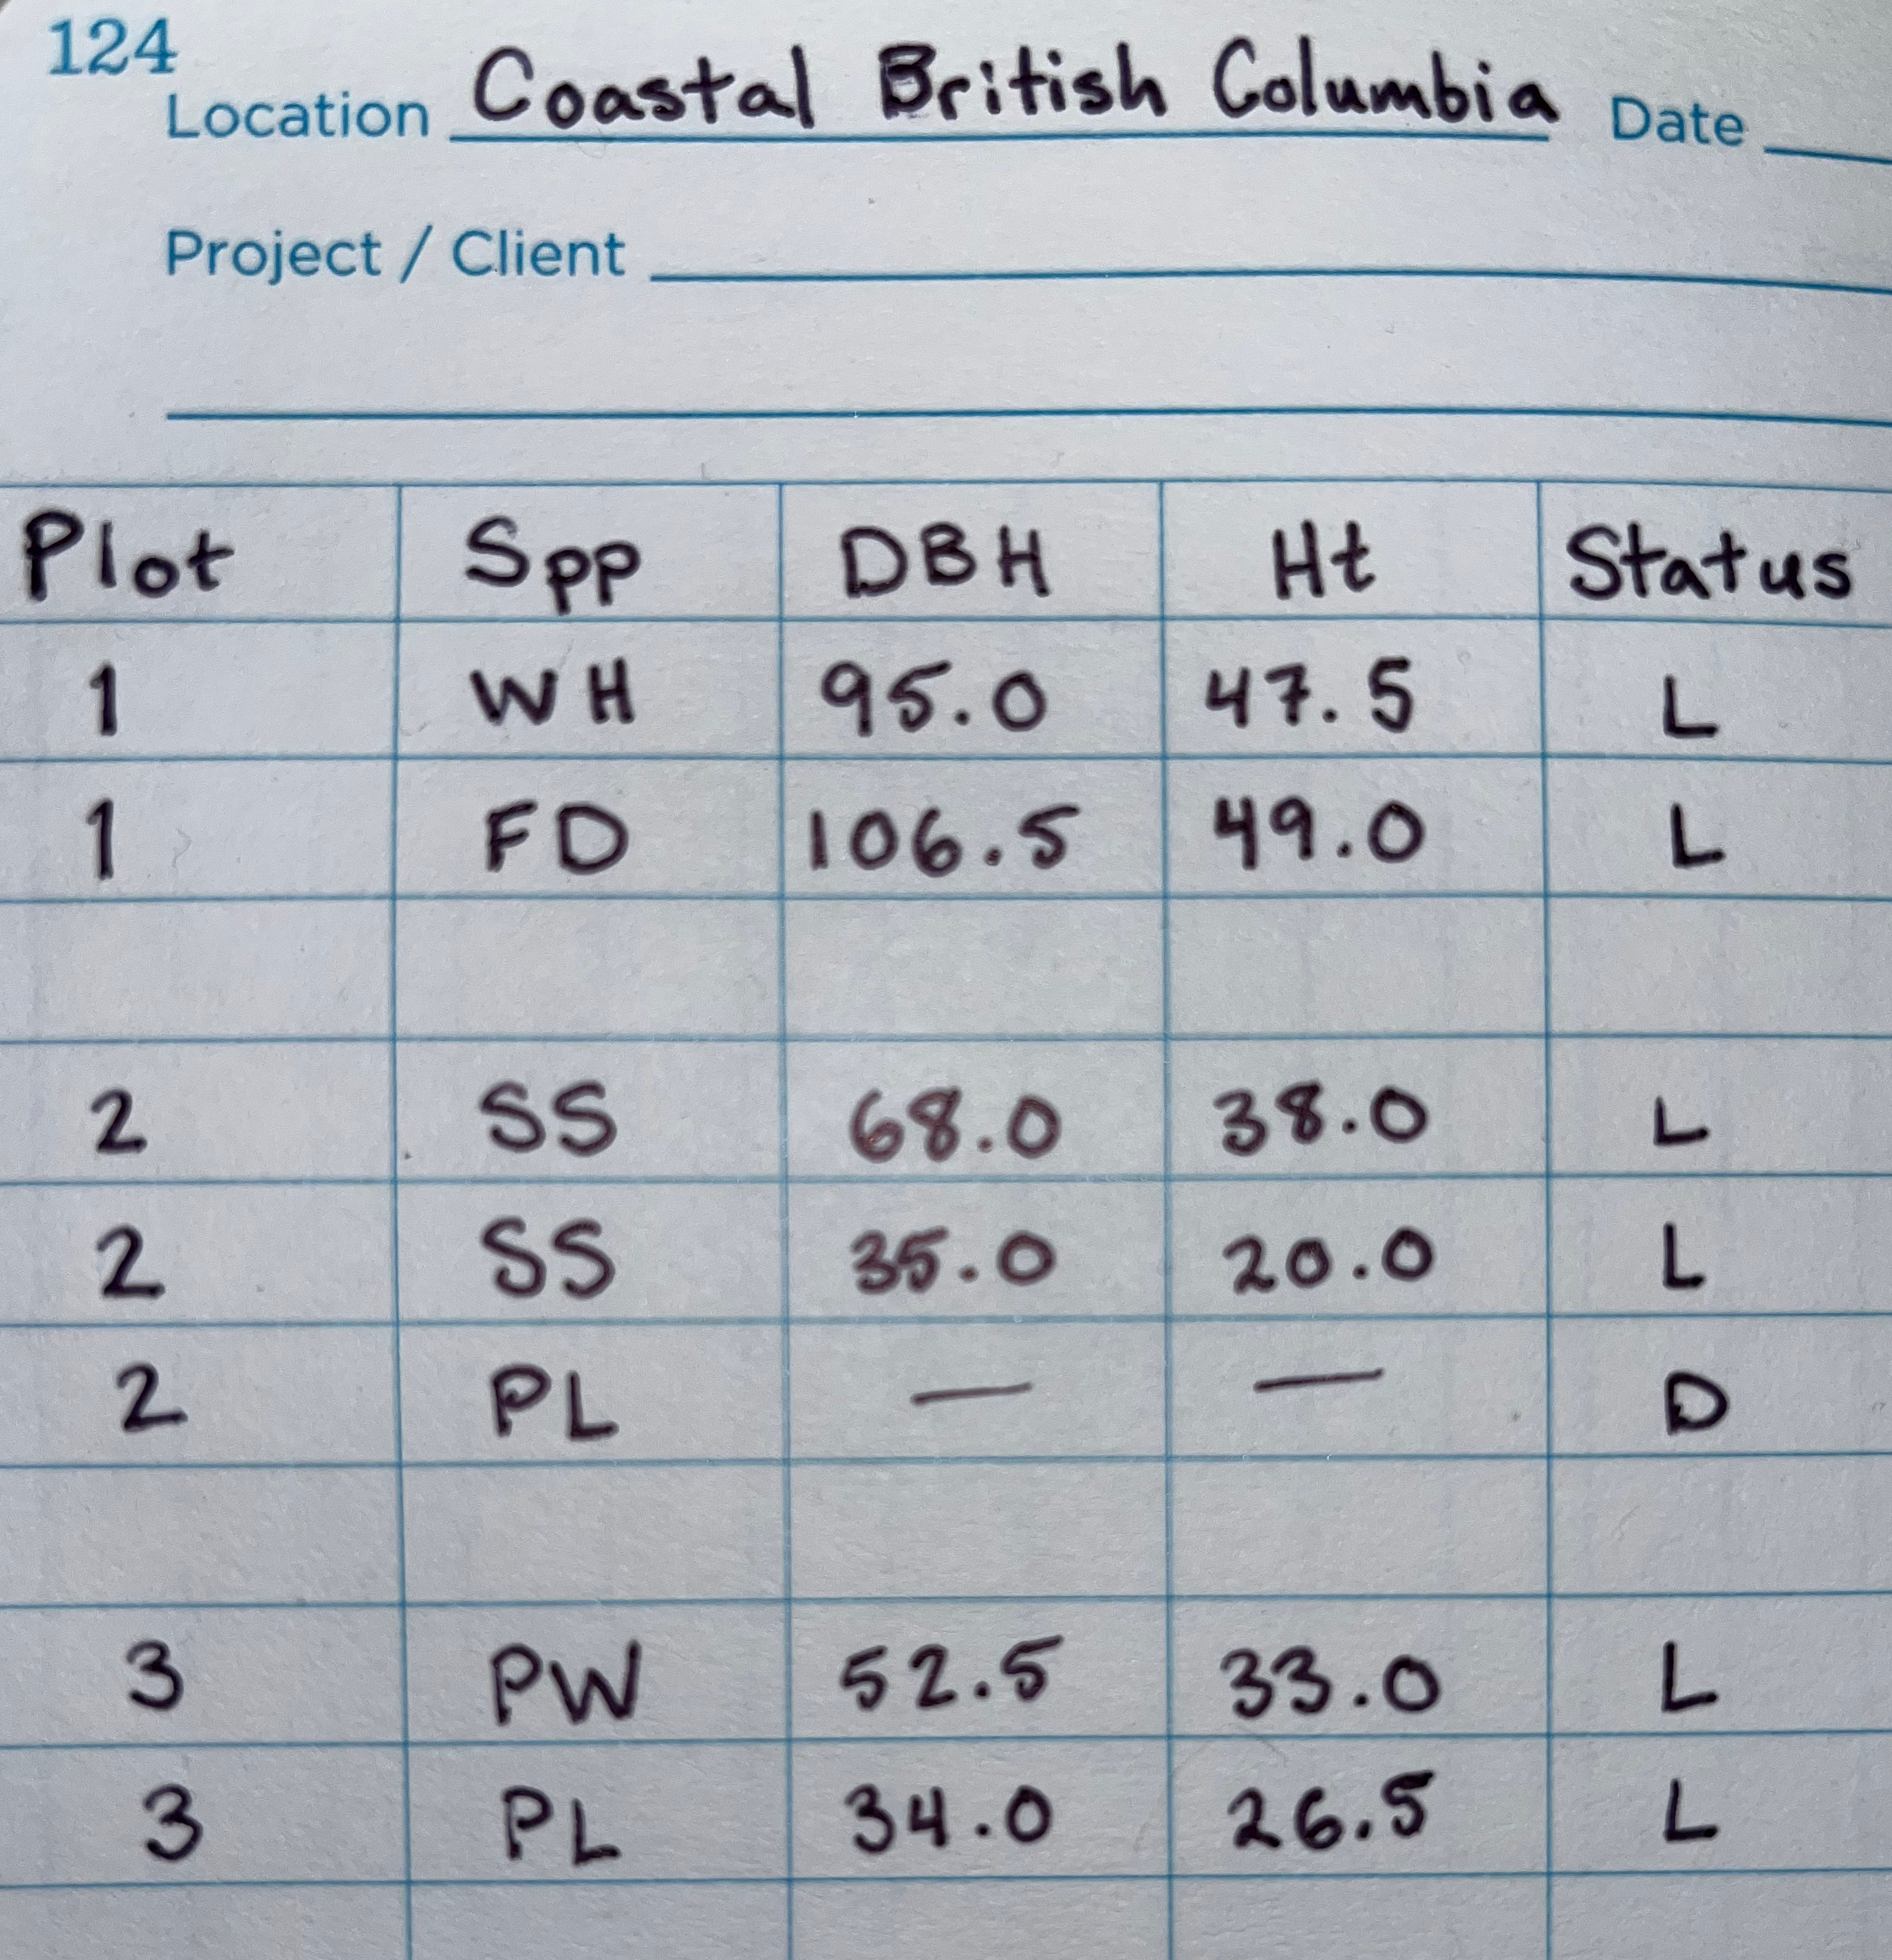 124
Location Coastal British Columbia Date
Project / Client
Plot Spp DBH Ht Status
1 WH 95.0 47.5 L
1 FD 106.5 49.0 L
2 SS 68.0 38.0 L
2 SS 35.0 20.0 L
2 PL — — D
3 PW 52.5 33.0 L
3 PL 34.0 26.5 L